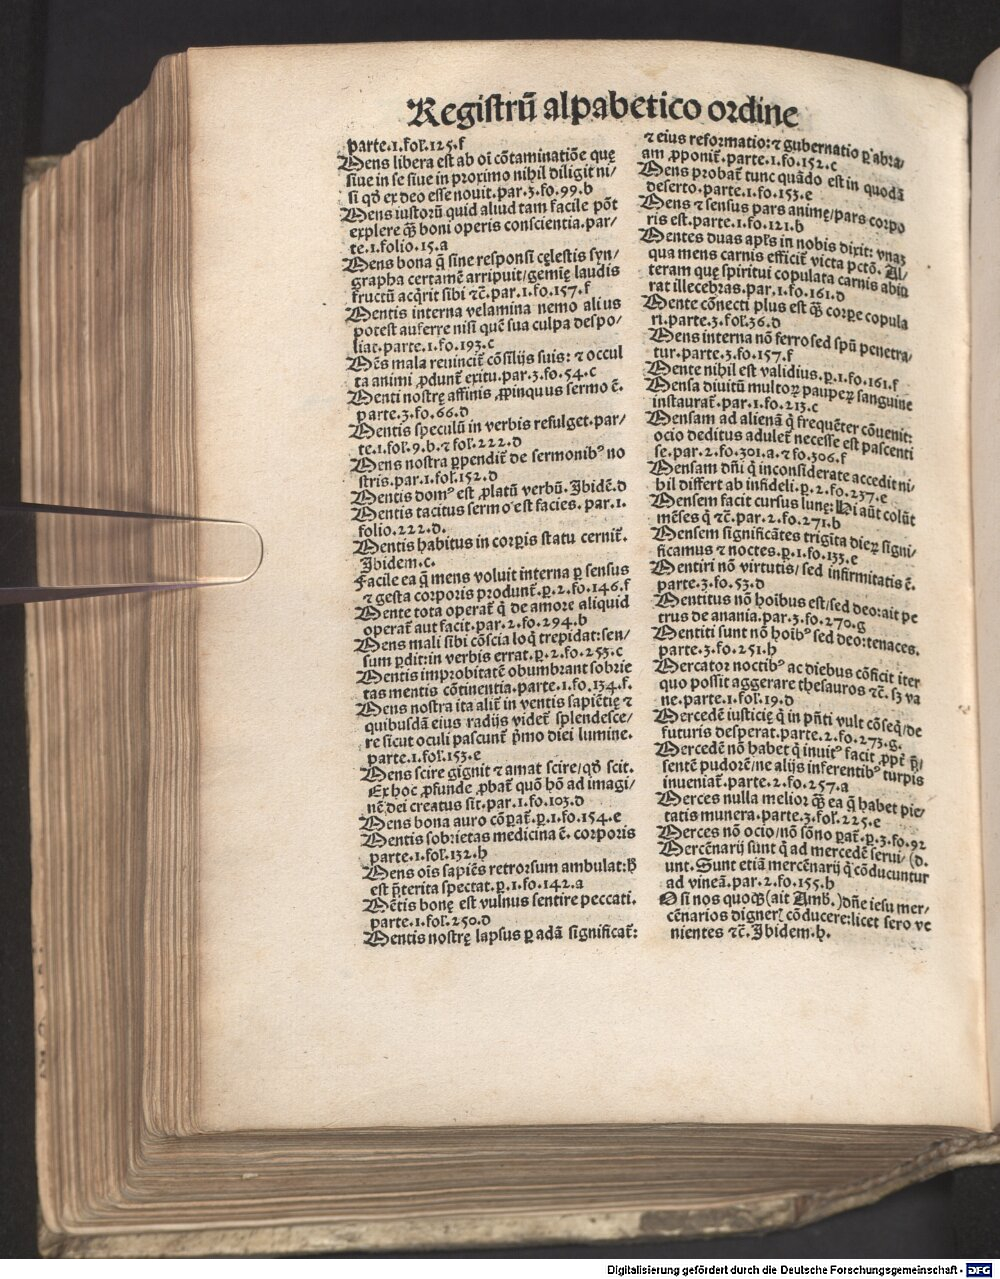 Registrū alpabetico ordine
parte.1.fol.125.f
Mens libera est ab oī cōtaminatiōe quę
siue in se siue in proximo nihil diligit ni/
si qđ ex deo esse nouit.par.3.fo.99.b
Mens iustorū quid aliud tam facile pōt
explere q̄ꝫ boni operis conscientia.par/
te.1.folio.15.a
Mens bona q̄ sine responsi cęlestis syn/
grapha certamē arripuit/gemię laudis
fructū acq̄rit sibi ⁊c̄.par.1.fo.157.f
Mentis interna velamina nemo alius
potest auferre nisi quē sua culpa despo/
liat.parte.1.fo.193.c
Mēs mala reuincit̄ cōsilijs suis: ⁊ occul
ta animi ꝓdunt̄ exitu.par.3.fo.54.c
Menti nostrę affinis ꝓpinquus sermo ē.
parte.3.fo.66.d
Mentis speculū in verbis refulget.par/
te.1.fol.9.b.⁊ fol.222.d
Mens nostra ꝑpendit̄ de sermonibꝰ no
stris.par.1.fol.152.d
Mentis domꝰ est ꝓlatū verbū.Ibidē.d
Mentis tacitus sermo est facies.par.1.
folio.222.d.
Mentis habitus in corꝑis statu cernit̄.
Ibidem.c.
Facile ea q̄ mens voluit interna ꝑ sensus
⁊ gesta corporis produnt̄.p.2.fo.146.f
Mente tota operat̄ q̇ de amore aliquid
operat̄ aut facit.par.2.fo.294.b
Mens mali sibi cōscia loq̇ trepidat:sen/
sum ꝑdit:in verbis errat.p.2.fo.253.c
Mentis improbitatē obumbrant sobrie
tas mentis cōtinentia.parte.1.fo.134.f.
Mens nostra ita alit̄ in ventis sapiētię ⁊
quibusdā eius radijs videt̄ splendesce/
re sicut oculi pascunt̄ p̄mo diei lumine.
parte.1.fol.153.e
Mens scire gignit ⁊ amat scire/qđ scit.
Ex hoc ꝓfunde ꝓbat̄ quō hō ad imagi/
nē dei creatus sit.par.1.fo.103.d
Mens bona auro cōꝑat̄.p.1.fo.154.e
Mentis sobrietas medicina ē. corporis
parte.1.fol.132.h
Mens oīs sapiēs retrorsum ambulat:h̄
est p̄terita spectat.p.1.fo.142.a
Mētis bonę est vulnus sentire peccati.
parte.1.fol.250.d
Mentis nostrę lapsus ꝑ adā significat̄:
⁊ eius reformatio:⁊ gubernatio ꝑ abra/
am ꝓponit̄.parte.1.fo.152.c
Mens probat̄ tunc quādo est in quodā
deserto.parte.1.fo.153.e
Mens ⁊ sensus pars animę/pars corpo
ris est.parte.1.fo.121.b
Mentes duas apl̄s in nobis dixit: vnaꝫ
qua mens carnis efficit̄ victa pctō. Al/
teram quę spiritui copulata carnis abiu
rat illecebras.par.1.fo.161.d
Mente cōnecti plus est q̄ꝫ corꝑe copula
ri.parte.3.fol.36.d
Mens interna nō ferro sed spū penetra/
tur.parte.3.fo.157.f
Mente nihil est validius.p.1.fo.161.f
Mensa diuitū multoꝝ paupeꝝ sanguine
instaurat̄.par.1.fo.213.c
Mensam ad alienā q̇ frequēter cōuenit:
ocio deditus adulet̄ necesse est pascenti
se.par.2.fo.301.a.⁊ fo.306.f
Mensam dn̄i q̇ inconsiderate accedit ni/
hil differt ab infideli.p.2.fo.237.e
Mensem facit cursus lunę:Hi aūt colūt
mēses q̇ ⁊c̄.par.2.fo.271.b
Mensem significātes trigita dieꝝ signi/
ficamus ⁊ noctes.p.1.fo.133.e
Mentiri nō virtutis/sed infirmitatis ē.
parte.3.fo.53.d
Mentitus nō hoībus est/sed deo:ait pe
trus de anania.par.3.fo.270.g
Mentiti sunt nō hoībꝰ sed deo:tenaces.
parte.3.fo.251.h
Mercator noctibꝰ ac diebus cōficit iter
quo possit aggerare thesauros ⁊c̄. sꝫ va
ne.parte.1.fol.19.d
Mercedē iusticię q̇ in pn̄ti vult cōseq̇/de
futuris desperat.parte.2.fo.273.g.
Mercedē nō habet q̇ inuitꝰ facit ꝓpt̄ p̄/
sentē pudorē/ne alijs inferentibꝰ turpis
inueniat̄.parte.2.fo.257.a
Merces nulla melior q̄ꝫ ea q̄ habet pie/
tatis munera.parte.3.fol.225.e
Merces nō ocio/nō sōno ꝑat̄.p.3.fo.92
Mercēnarij sunt q̇ ad mercedē serui/ (d.
unt.Sunt etiā mercēnarij q̇ cōducuntur
ad vineā.par.2.fo.155.h
O si nos quoqꝫ(ait Amb.)dn̄e iesu mer/
cēnarios digner̄ cōducere:licet sero ve
nientes ⁊c̄.Ibidem.h.
Digitalisierung gefördert durch die Deutsche Forschungsgemeinschaft - DFG